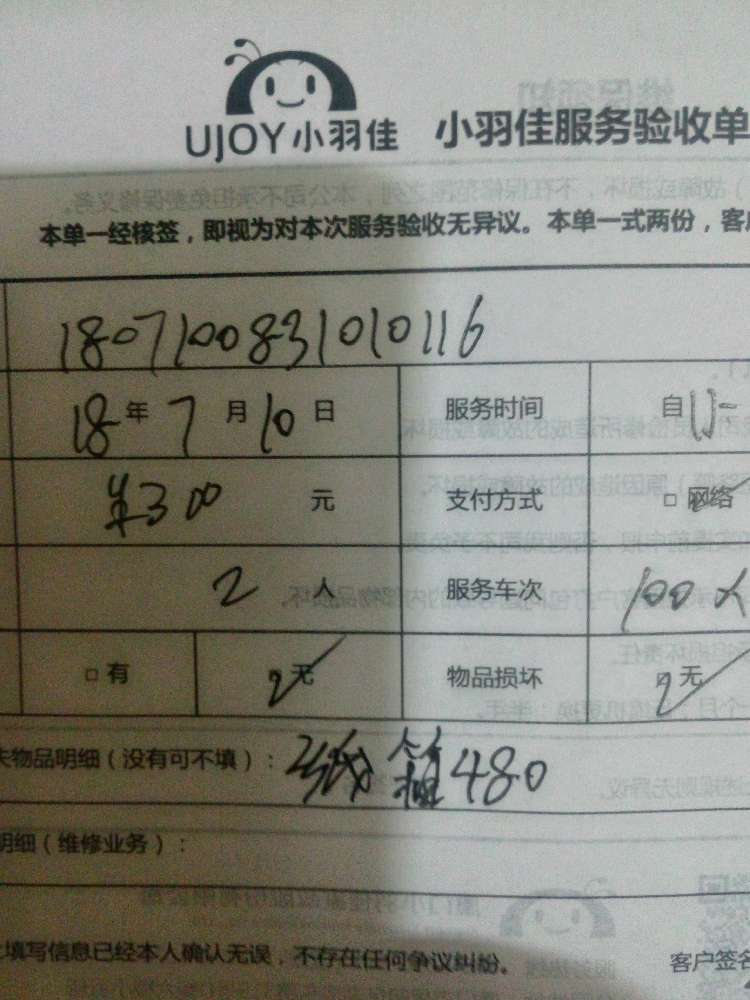 UJOY小羽佳 小羽佳服务验收单
本单一经核签，即视为对本次服务验收无异议。本单一式两份，客户
1807100831010116
18年7月10日 服务时间 自
¥300 元 支付方式 □ 网络
2 人 服务车次 100
□ 有 无 物品损坏 □ 无
失物品明细（没有可不填）： 纸箱480
明细（维修业务）：
填写信息已经本人确认无误，不存在任何争议纠纷。 客户签名